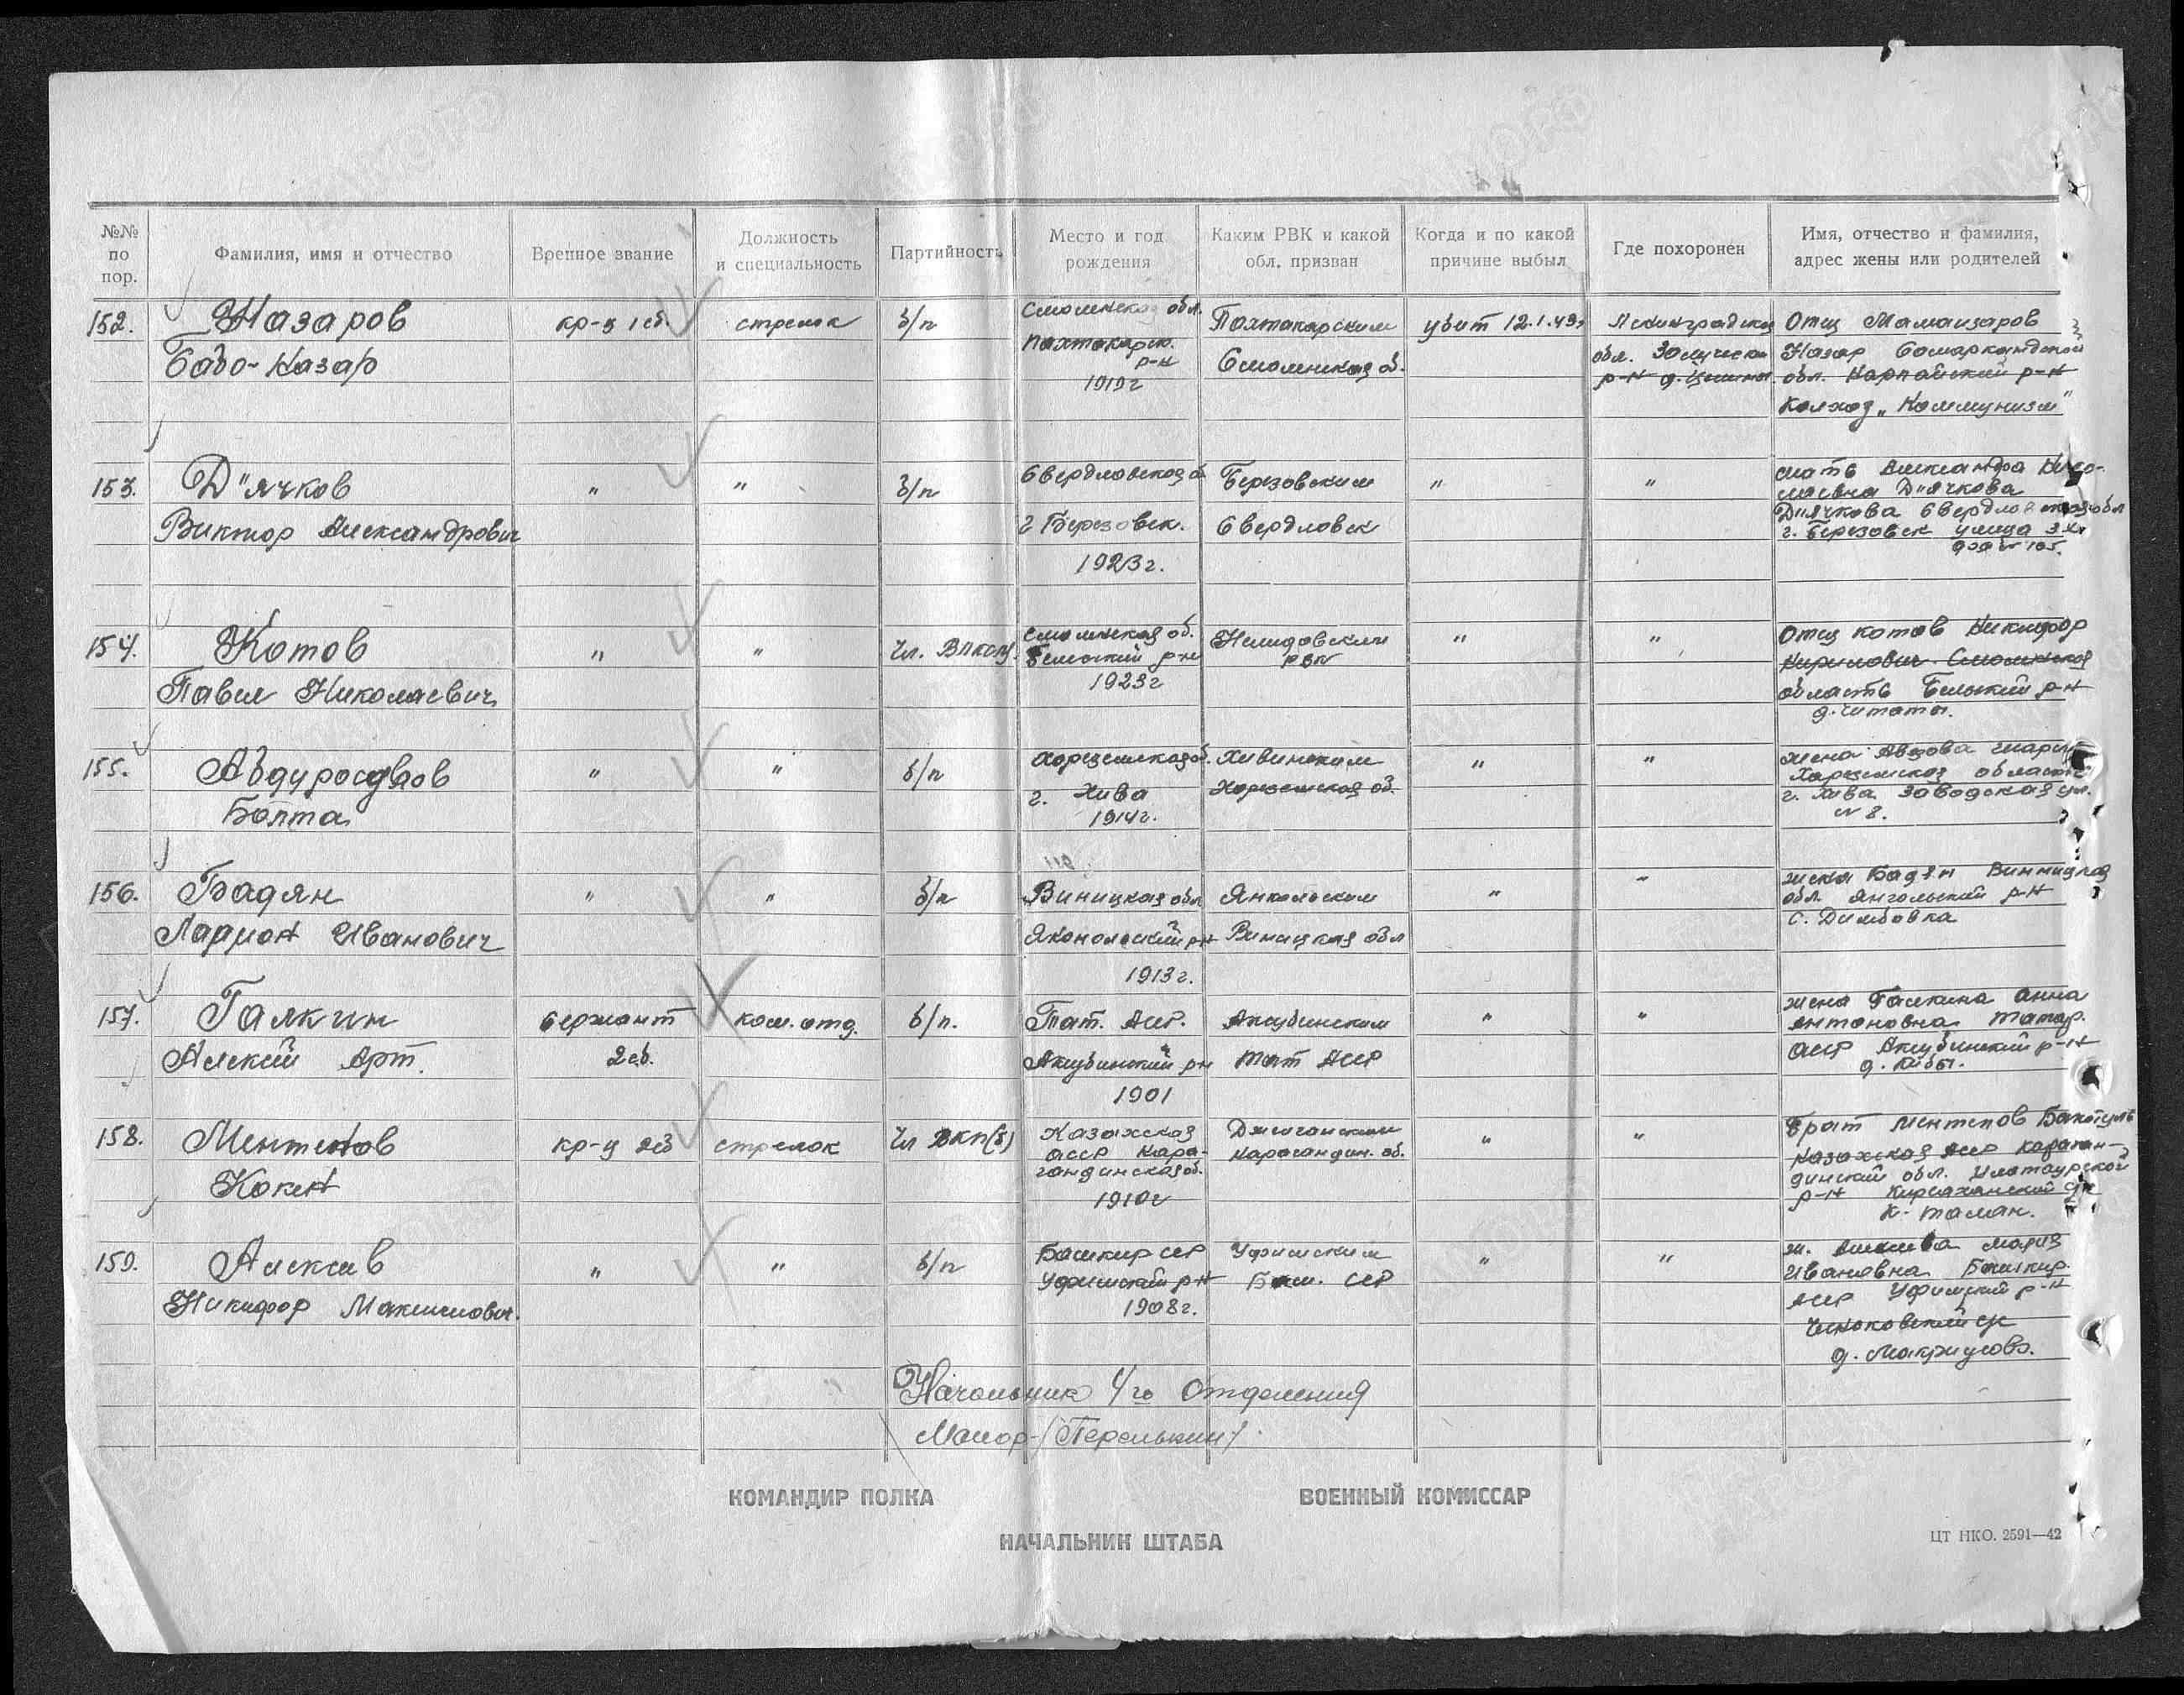 №№ по пор.
Фамилия, имя и отчество
Военное звание
Должность и специальность
Партийность
Место и год рождения
Каким РВК и какой обл. призван
Когда и по какой причине выбыл
Где похоронен
Имя, отчество и фамилия, адрес жены или родителей
152. Назаров кр-ц 1 сб. стрелок б/п Смоленская обл. Пахтакарским убит 12.1.43г Ленинградская Отец Маманзаров
Бабо-Назар Пахтакарск. р-н Смоленская об. обл. р-н д. Назар Самаркандской
1919г обл. Нарпайский р-н
Колхоз „Коммунизм"
153. Д"ячков " " б/п Свердловская о Березовским " " мать Александра
Виктор Александрович г Березовск. Свердловск Д"ячкова
1923г. Д"ячкова Свердловская обл
г. Березовск улица
154. Котов " " Чл. Смоленская об. Нелидовским " " Отец Котов Никифор
Павел Николаевич Бельский р-н РВК Кирилович Смоленская
1923г область Бельский р-н
д.
155. " " б/п Хорезмская об. Хивинским " " жена
Болта г. Хива Хорезмская об. Хорезмская область
1914г. г. Хива Заводская ул.
№ 8.
156. Бадян " " б/п Виницкая обл Янкольским " " жена Бадян Винницкая
Ларион Иванович р-н Виницкая обл обл. Янгольский р-н
1913г. с. Димбовка
157. Галкин сержант ком. отд. б/п. Тат. АССР. Аксубинским " " жена Галкина Анна
Алексей Арт. 2 сб. Аксубинский р-н Тат АССР Антоновна Татар.
1901 АССР Аксубинский р-н
д. Кибы.
158. Ментенов кр-ц 2сб стрелок Чл ВКП(б) Казахская " " Брат Ментепов
Кокен АССР Кара- Карагандин. об. Казахская АССР Караган-
гандинская об. динский обл.
1910г р-н
К-таман.
159. Алексеев " " б/п Башкир ССР Уфимским " " ж. Алексеева Мария
Никифор Максимович. Уфимский р-н Баш. ССР Ивановна Башкир.
1908г. АССР Уфимский р-н
Чесноковский с/с
д.
Начальник 4го Отделения
Майор-(Перелькин).
КОМАНДИР ПОЛКА
ВОЕННЫЙ КОМИССАР
НАЧАЛЬНИК ШТАБА
ЦТ НКО. 2591—42